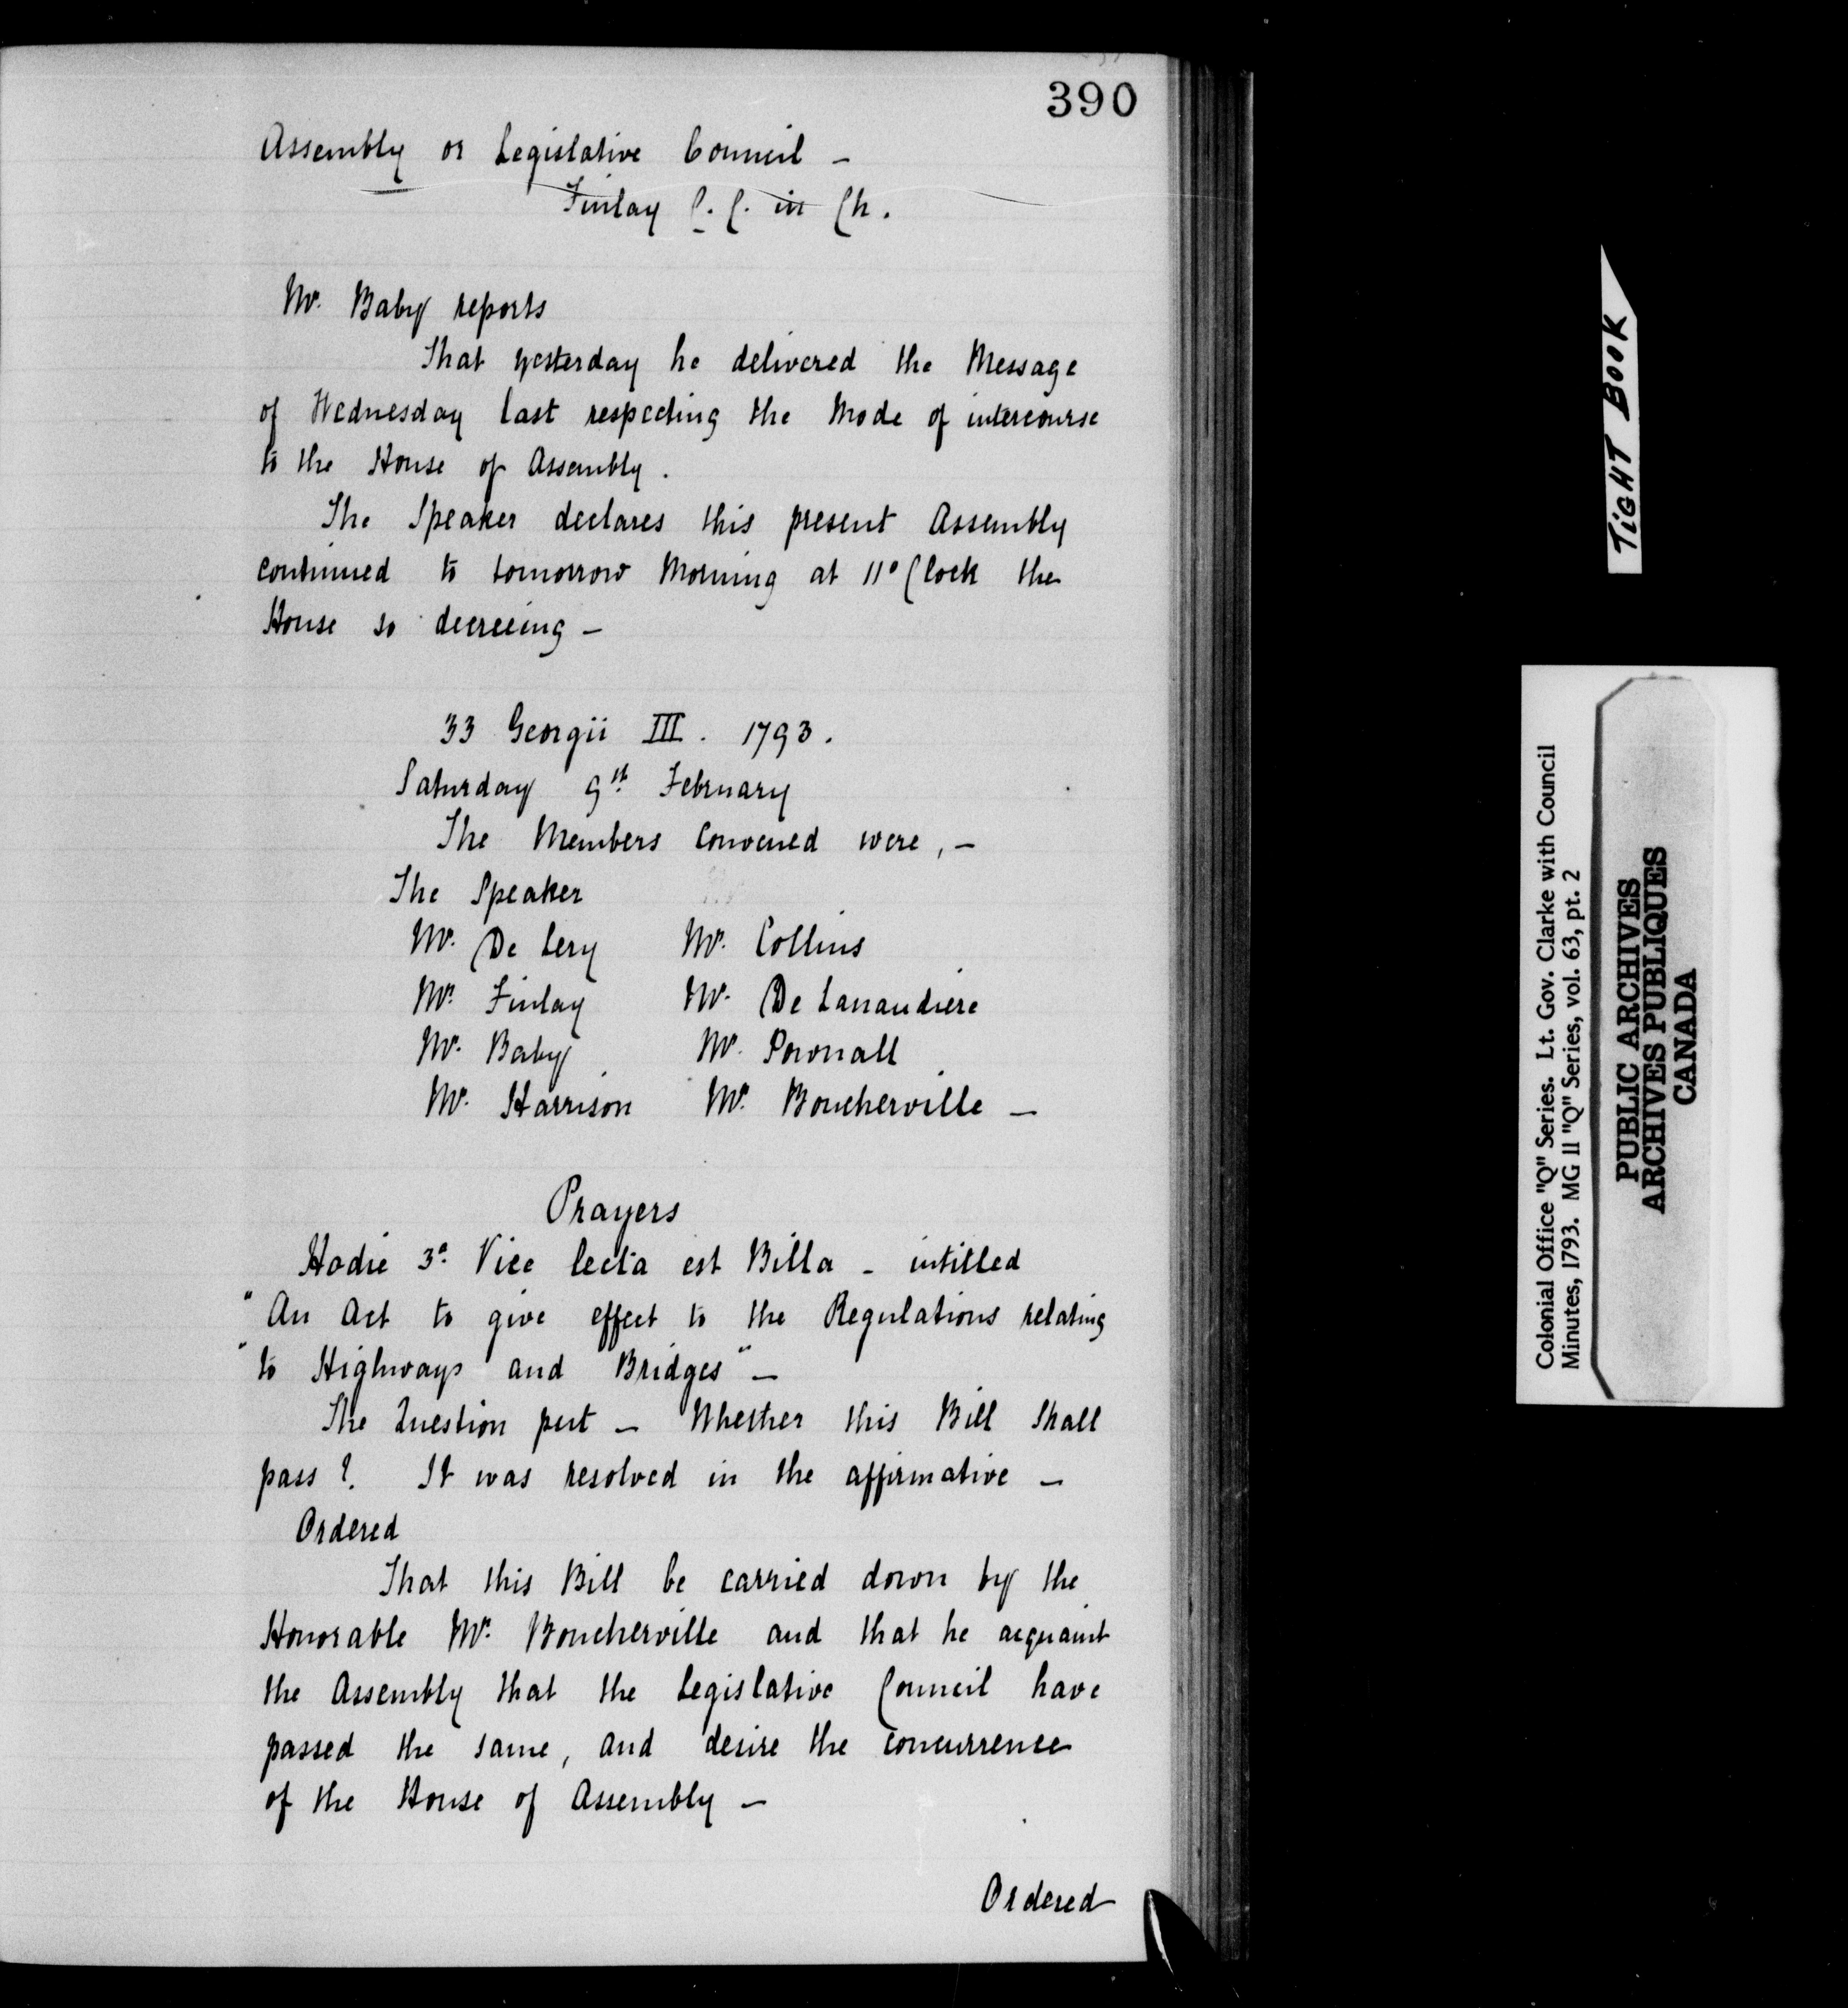 390
Assembly or Legislative Council –
Finlay C. C. in Ch.
Mr. Baby reports
That yesterday he delivered the Message
of Wednesday last respecting the Mode of intercourse
to the House of Assembly.
The Speaker declares this present Assembly
continued to tomorrow Morning at 11 o Clock the
House so decreeing –
33 Georgii III. 1793.
Saturday 9th February
The Members Convened were, –
The Speaker
Mr. De Lery Mr. Collins
Mr. Finlay Mr. De Lanaudiere
Mr. Baby Mr. Pownall
Mr. Harrison Mr. Boucherville –
Prayers
Hodie 3a Vice lecta est Billa – intitled
"An Act to give effect to the Regulations relating
"to Highways and Bridges" –
The Question put – Whether this Bill Shall
pass? It was resolved in the affirmative –
Ordered
That this Bill be carried down by the
Honorable Mr. Boucherville and that he acquaint
the Assembly that the Legislative Council have
passed the same, and desire the concurrence
of the House of Assembly –
Ordered
TIGHT BOOK
Colonial Office "Q" Series. Lt. Gov. Clarke with Council
Minutes, 1793. MG 11 "Q" Series, vol. 63, pt. 2
PUBLIC ARCHIVES
ARCHIVES PUBLIQUES
CANADA